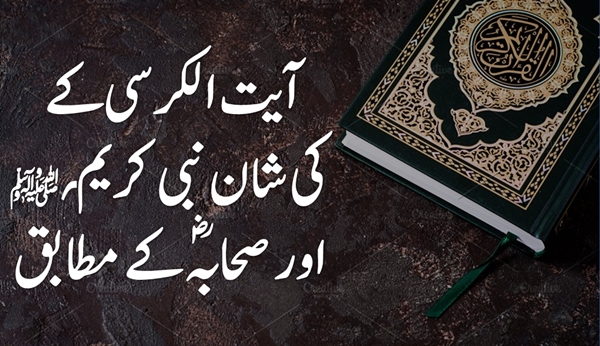 آیت الکرسی کے
کی شان نبی کریم ﷺ
اور صحابہؓ کے مطابق
القرآن الكريم